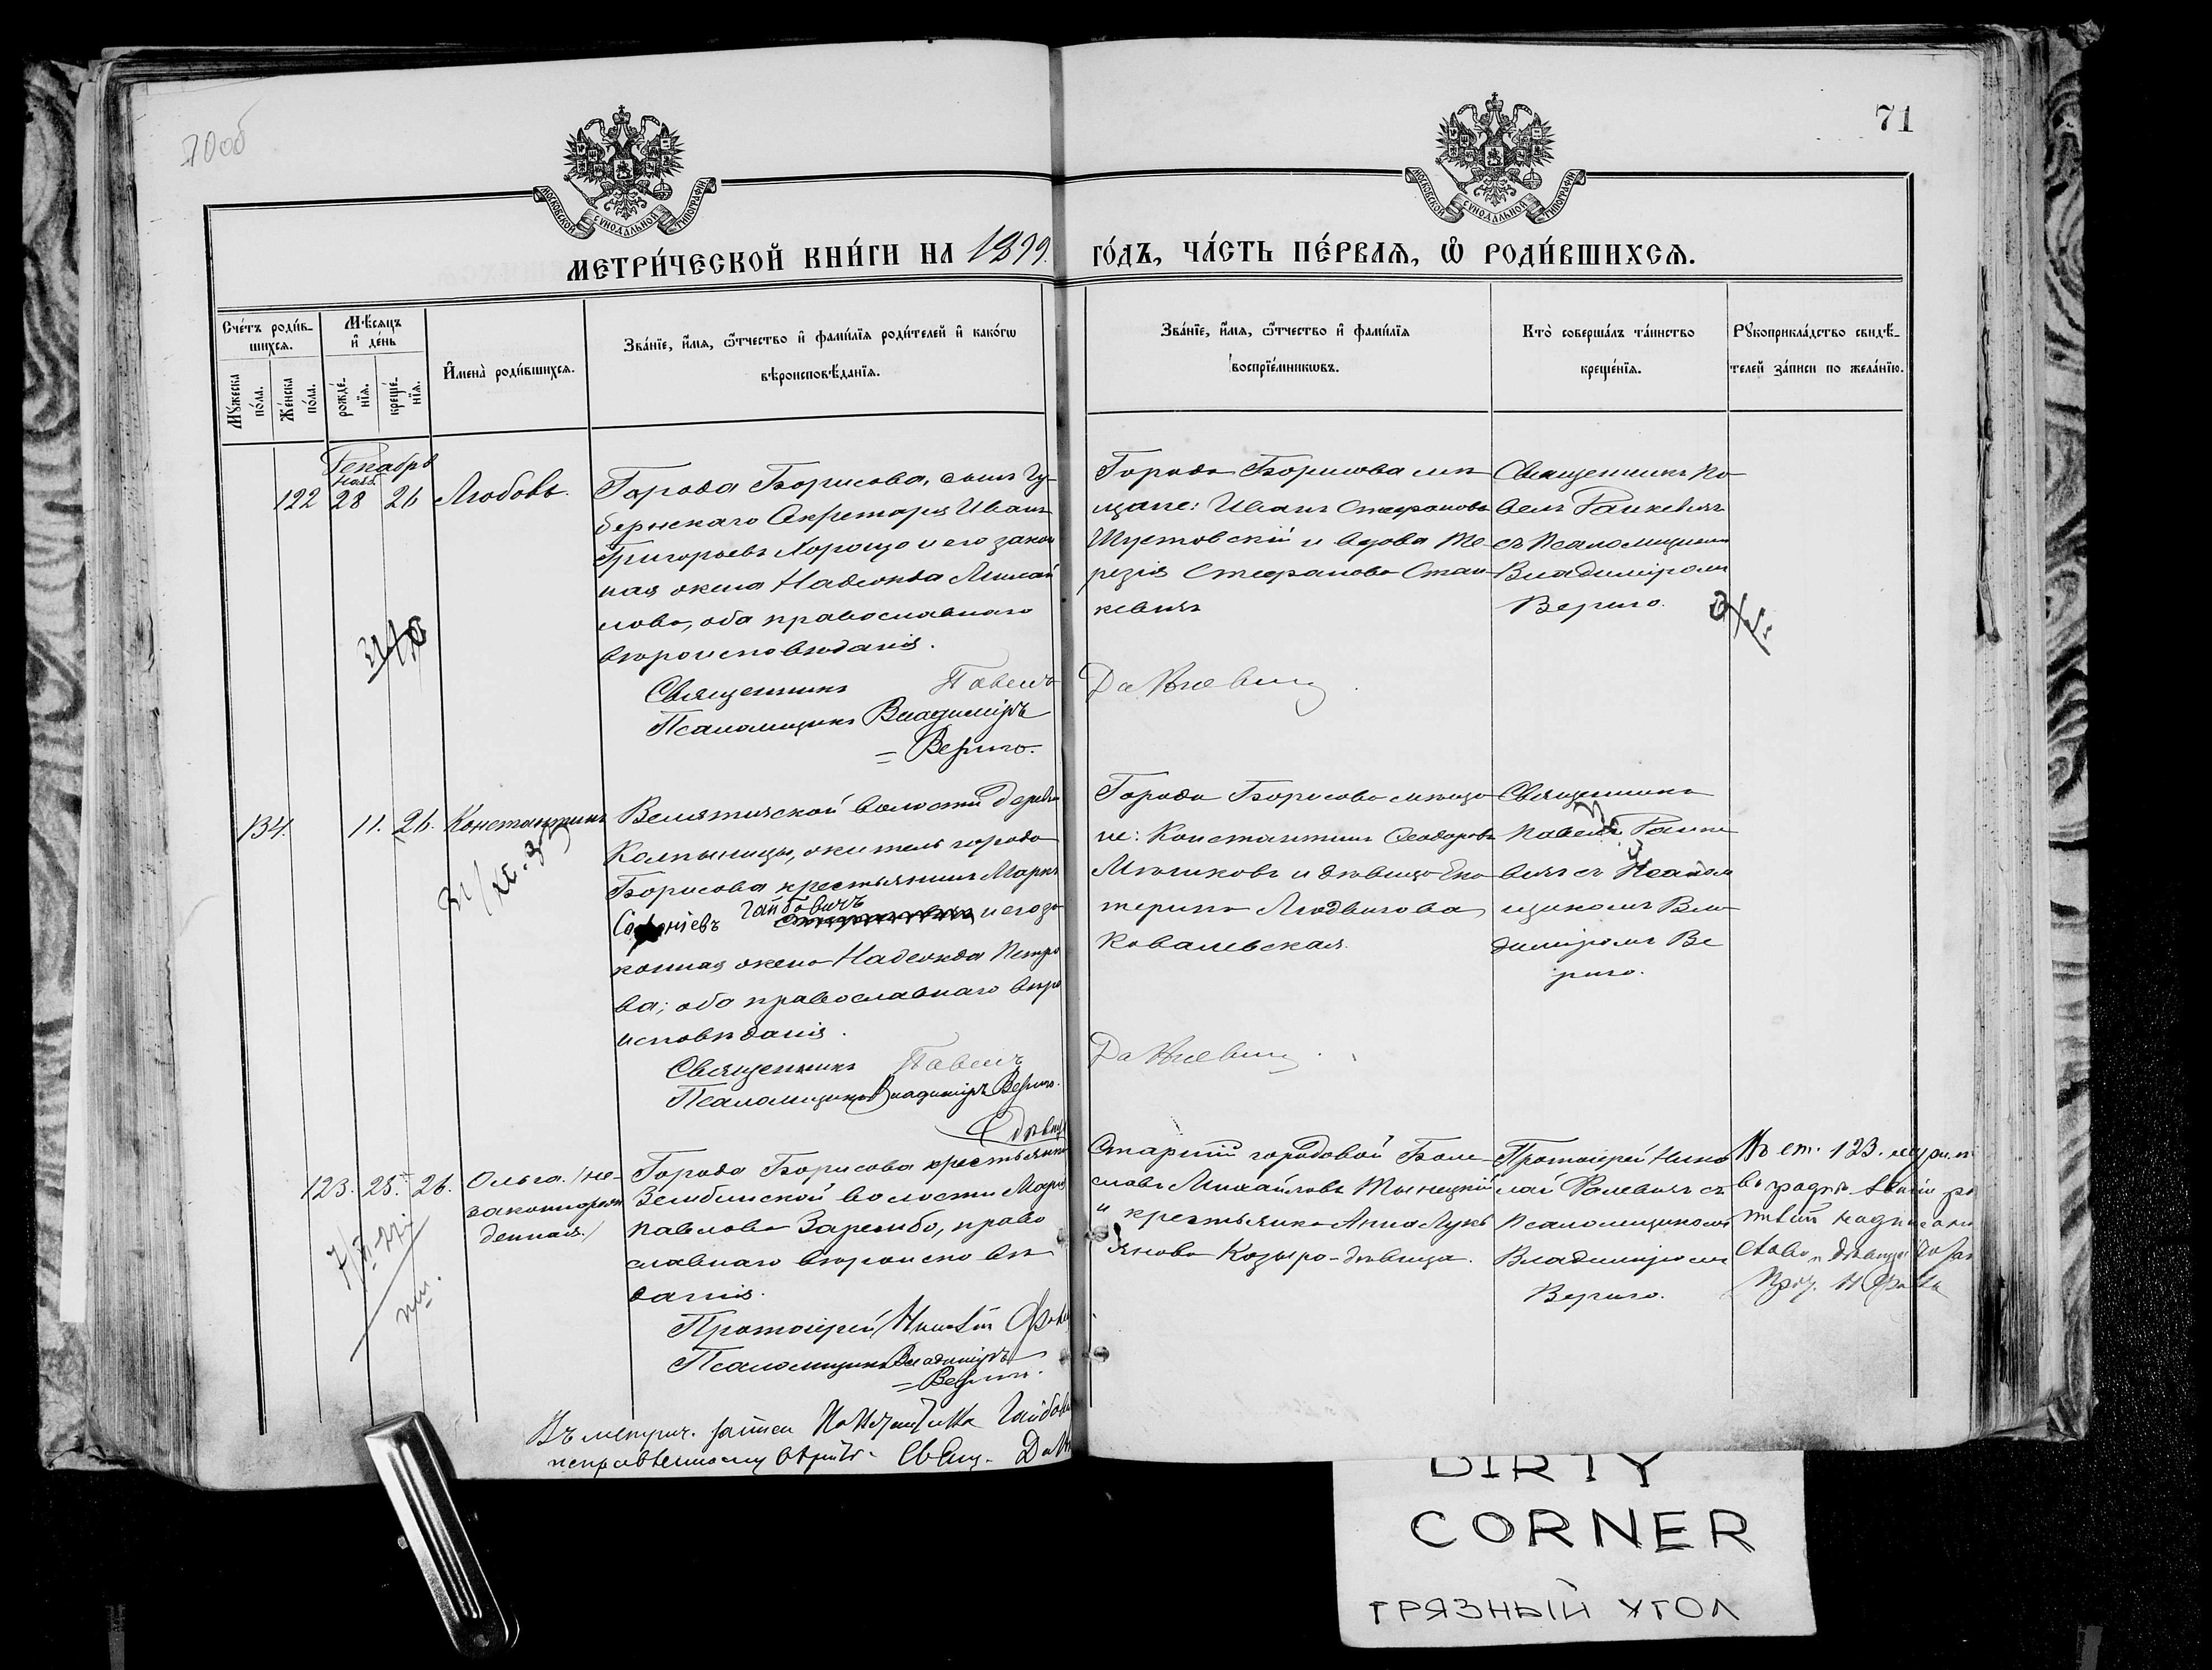 70об
71
МОСКОВСКОЙ СѴНОДАЛЬНОЙ ТИПОГРАФІИ
МОСКОВСКОЙ СѴНОДАЛЬНОЙ ТИПОГРАФІИ
МЕТРИ́ЧЕСКОЙ КНИ́ГИ НА 1899. ГО́ДЪ, ЧА́СТЬ ПЕ́РВАѦ, Ѽ РОДИ́ВШИХСѦ.
Сче́тъ роди́в-
шихсѧ.
Мꙋ́жеска по́ла.
Же́нска по́ла.
Мѣ́сѧцъ и҆ де́нь
рожде́-
нїѧ.
креще́-
нїѧ.
И҆мена̀ роди́вшихсѧ.
Зва́нїе, и҆́мѧ, ѻ҆́тчество и҆ фами́лїѧ роди́телей и҆ како́гѡ
вѣроисповѣ́данїѧ.
Зва́нїе, и҆́мѧ, ѻ҆́тчество и҆ фами́лїѧ
воспрїе́мникѡвъ.
Кто̀ соверша́лъ та́инство
креще́нїѧ.
Рꙋкоприкла́дство свидѣ́-
телей за́писи по жела́нїю.
Декабрь
Нояб.
122 28 26 Любовь.
Города Борисова, сынъ Гу-
бернскаго Секретаря Иванъ
Григорьевъ Хорощо и его закон
ная жена Надежда Михай
лова, оба православнаго
вѣроисповѣданія.
Священникъ Павелъ
Псаломщикъ Владиміръ
= Вериго.
Города Борисова мѣ-
щане: Иванъ Стефановъ
Шустовскій и вдова Те-
резія Стефанова Стан-
кевичъ
Священникъ Па-
велъ Ранкевичъ
съ Псаломщикомъ
Владиміромъ
Вериго.
134. 11. 26. Константинъ
Велятичской волости деревни
Калпыницы, житель города
Борисова крестьянинъ Маркъ
Гайбовичъ и его за-
конная жена Надежда Петро
ва; оба православнаго вѣро
исповѣданія.
Священникъ Павелъ
Псаломщикъ Владиміръ Вериго.
Города Борисова мѣща-
не: Константинъ Ѳеодоровъ
Мѣшковъ и дѣвица Ека-
терина Людвигова
Ковалевская.
Священникъ
Павелъ Ранке
вичъ съ Псалом
щикомъ Вла-
диміромъ Ве
риго.
дѣвица
123. 25. 26. Ольга. (не-
законорож
денная.)
Города Борисова крестьянка
Зембинской волости Марія
Павлова Зарембо, право
славнаго вѣроисповѣ-
данія.
Протоіерей
Псаломщикъ Владиміръ
= Вериго.
Старшій городовой Боле-
славъ Михайловъ Тынецкій
и крестьянка Анна Лукь
янова Козыро-дѣвица.
Протоіерей Нико
лай Фалевичъ съ
Псаломщикомъ
Владиміромъ
Вериго.
Въ ст. 123.
въ графѣ
слово „дѣвица“
Въ метрич. записи Константина Гайбови
исправленному вѣрить. Свящ.
DIRTY
CORNER
ГРЯЗНЫЙ УГОЛ